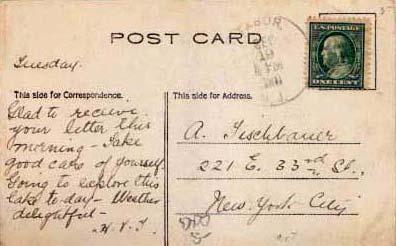 POST CARD
Tuesday.
TABOR
U.S. POSTAGE
ONE CENT
This side for Correspondence.
Glad to recieve
your letter this
morning - Take
good care of yourself
Going to explore this
lake to-day - Weather
delightful -
This side for Address.
A. Fischbauer
221 E. 33rd St.,
New York City